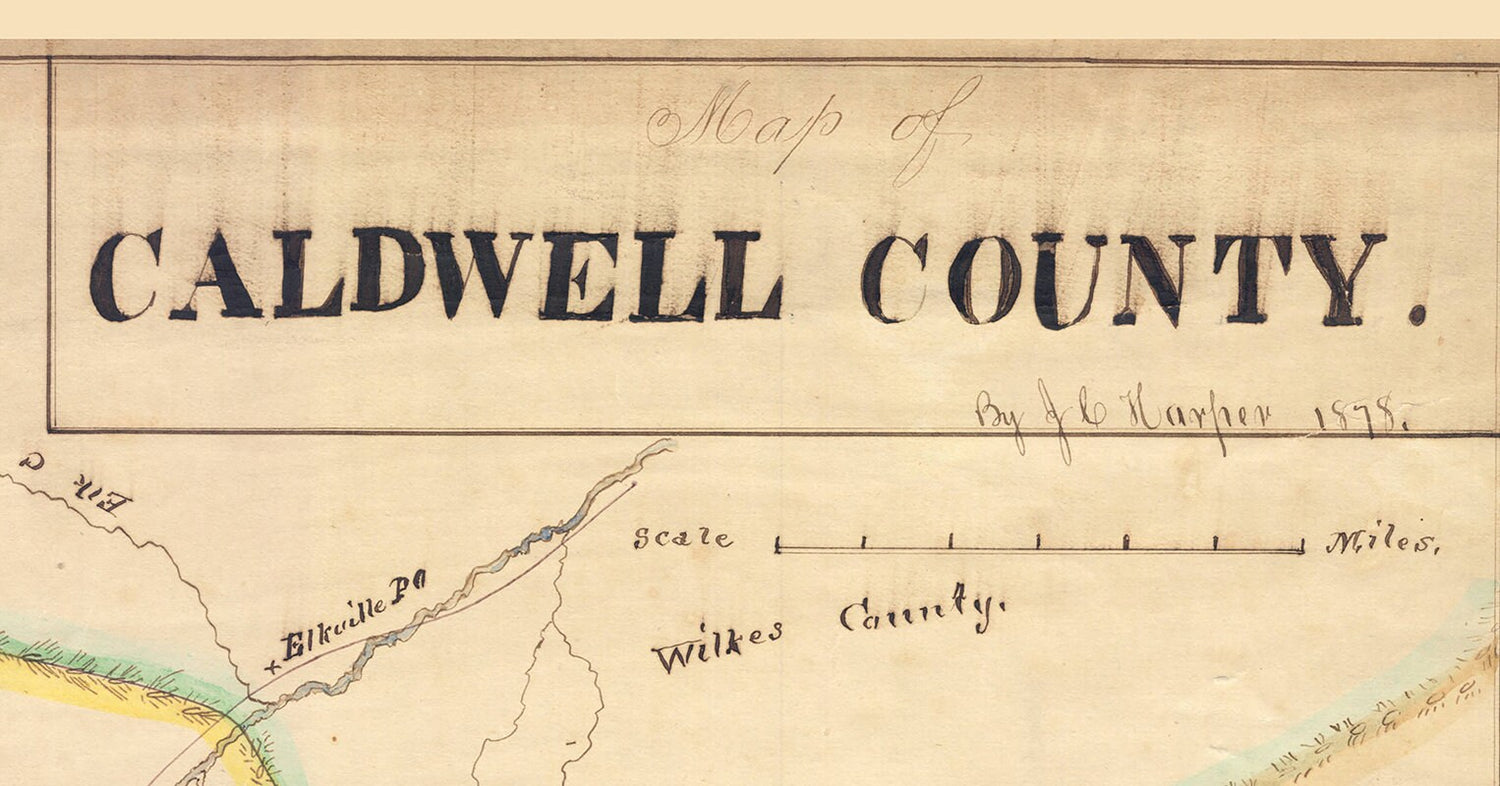 Map of
CALDWELL COUNTY.
By J C Harper 1878.
Elk C
Scale Miles.
Elkville PO
Wilkes County.